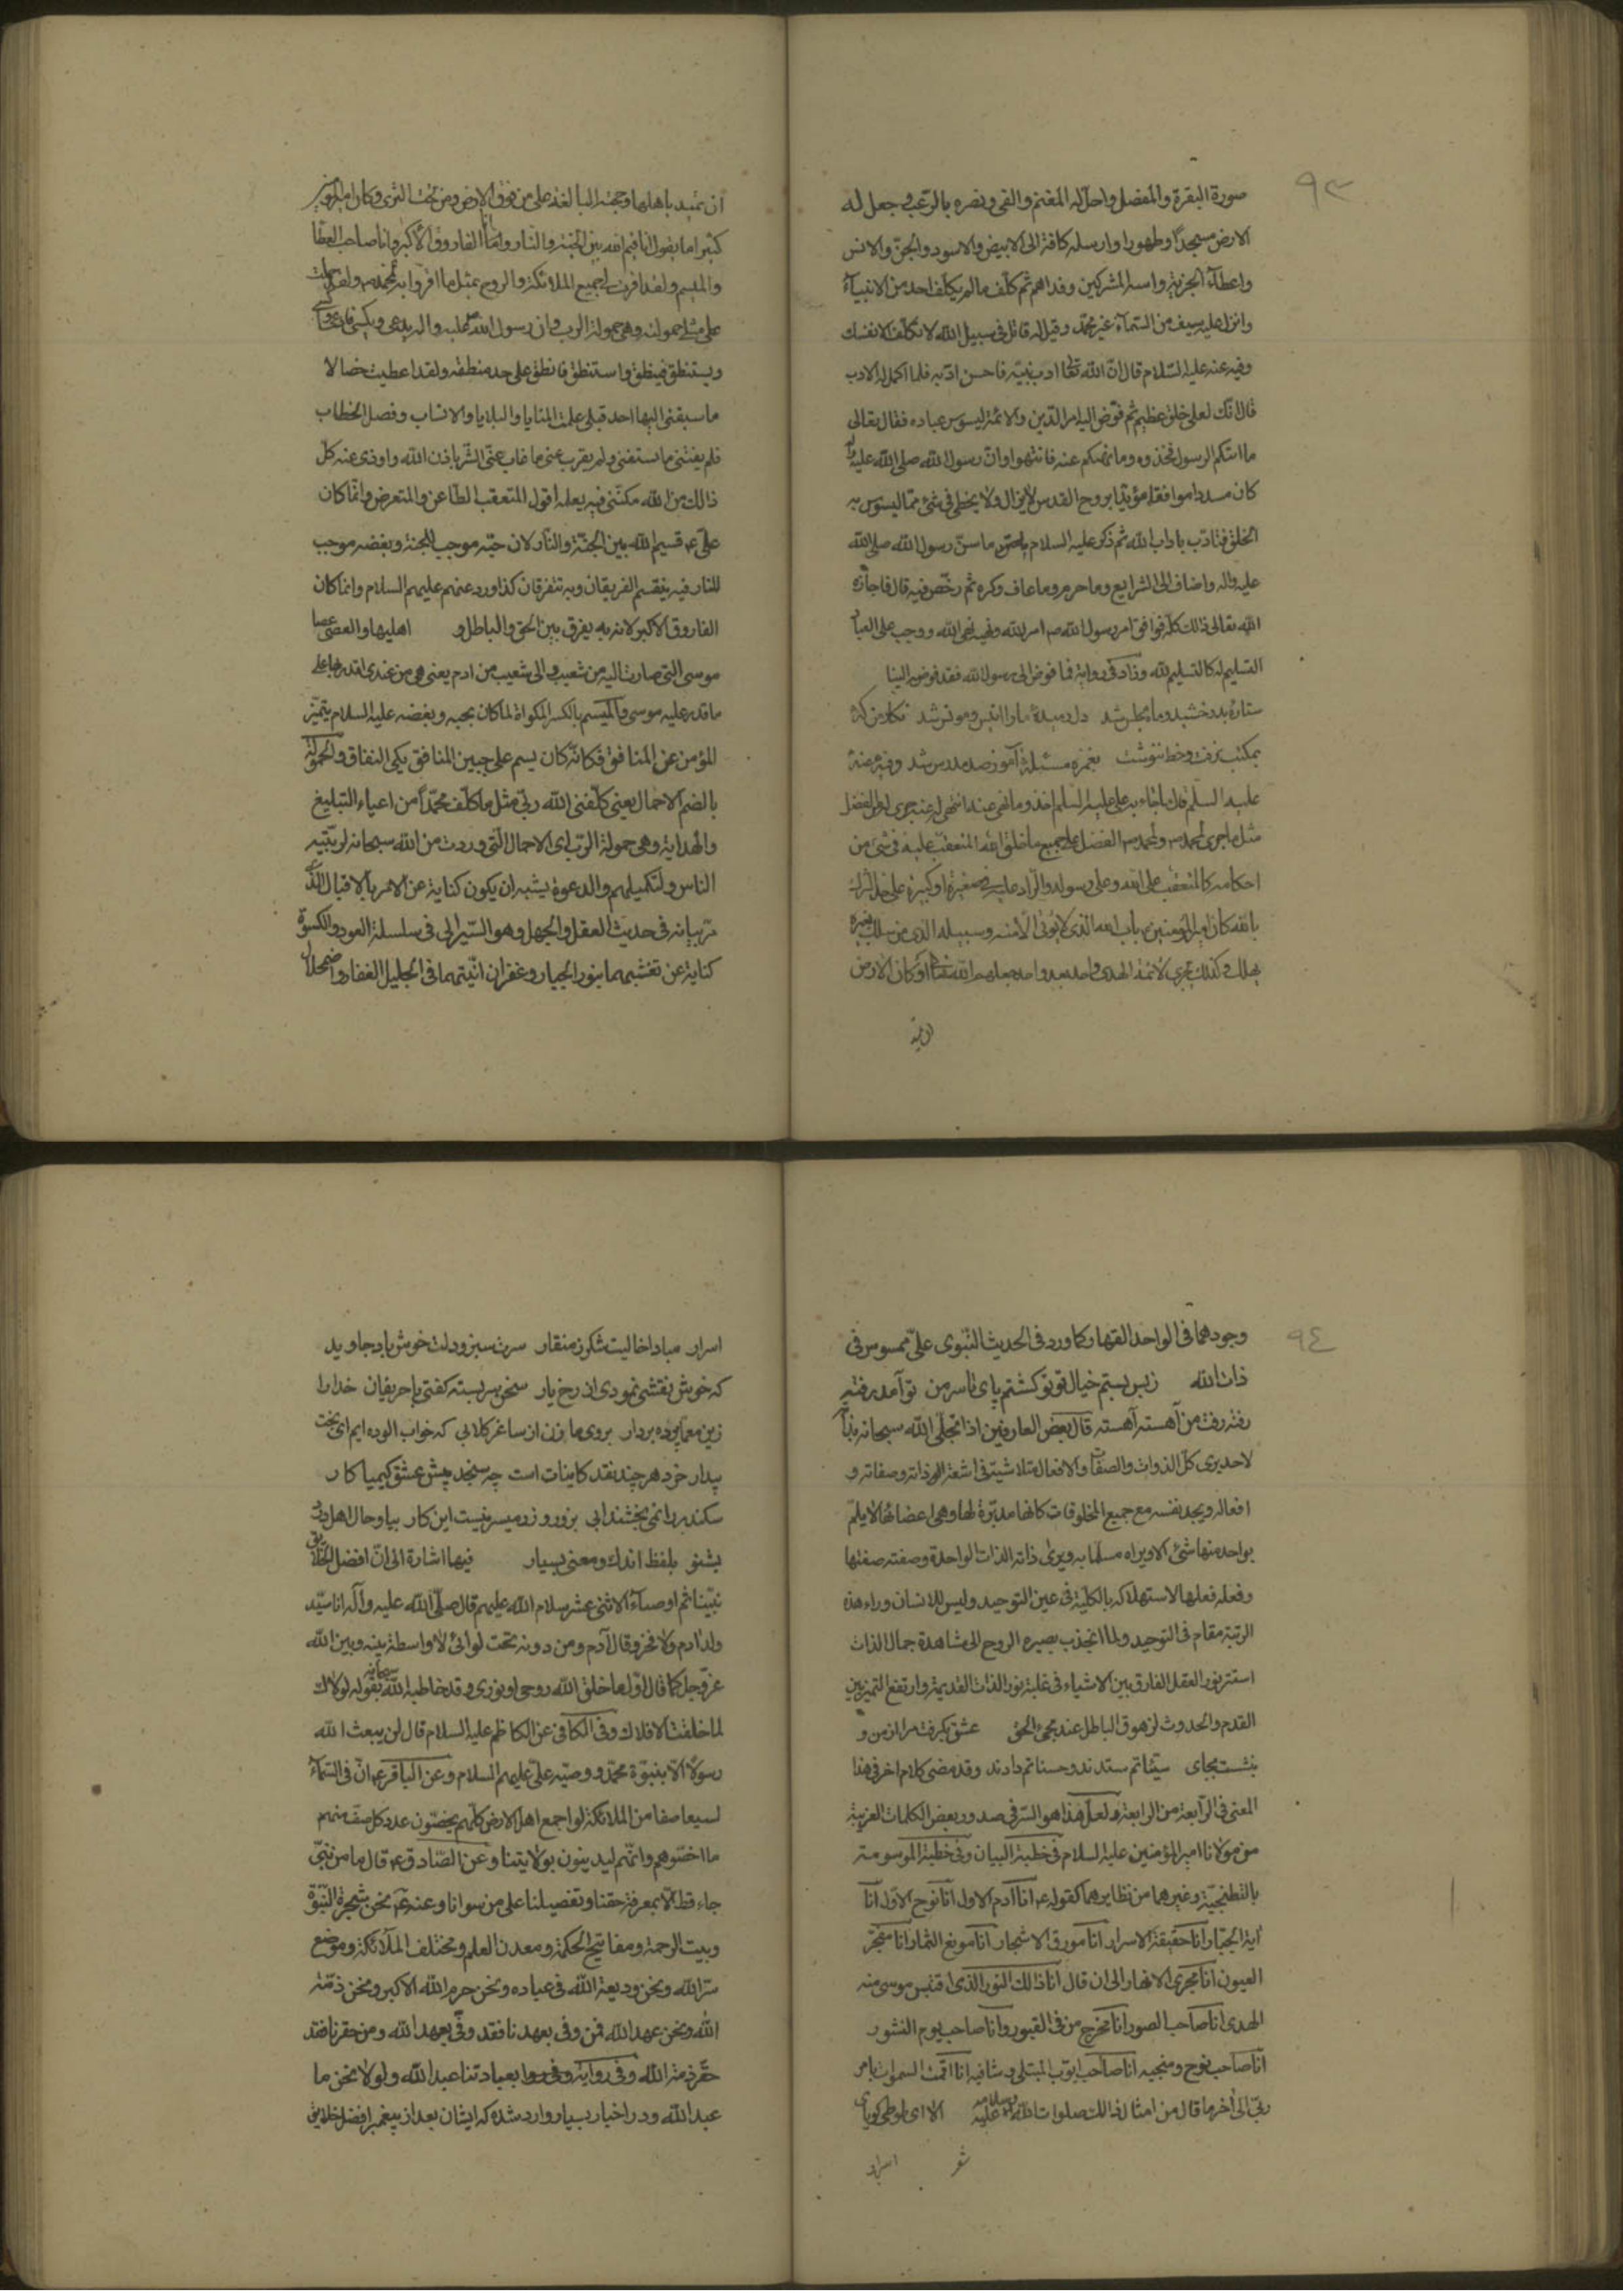 ٩٣
صورة البقرة والمفصل واحل له المغنم والفئ ونصره بالرعب وجعل له
الارض مسجداً وطهورا وارسله كافة الى الابيض والاسود والجن والانس
واعطاه الجزية واسر المشركين وفداهم ثم كلف ما لم يكلف احد من الانبياء
وانزل عليه سيف من السماء غير محمد وقيل له قاتل فى سبيل الله لا تكلف الا نفسك
وفيه عنه عليه السلام قال ان الله تعالى ادب نبيه فاحسن ادبه فلما اكمل له الادب
قال انك لعلى خلق عظيم ثم فوض اليه امر الدين والامة ليسوس عباده فقال تعالى
ما اتيكم الرسول فخذوه وما نهيكم عنه فانتهوا وان رسول الله صلى الله عليه
كان مسددا موافقا مؤيدا بروح القدس لا يزال ولا يخطى فى شئ مما يسوس به
الخلق فتادب باداب الله ثم ذكر عليه السلام ما سن رسول الله صلى الله
عليه واله واضاف الى الشرايع وما حرم وما عاف وكره ثم رخص فيه قال فاجازه
الله تعالى ذلك كله فوافق امر رسول الله ص امر الله ونهيه نهى الله ووجب على العباد
التسليم له كالتسليم لله وزاد فى رواية فما فوض الى رسول الله فقد فوضه الينا
ستاره بدرخشيد وماه مجلس شد دل رميده ما را انيس و مونس شد نكار من كه
بمكتب نرفت وخط ننوشت بغمزه مسئله آموز صد مدرس شد وفيه عنه
عليه السلم قال ما جاء به على عليه السلم اخذ وما نهى عنه انتهى عنه جرى له من الفضل
مثل ما جرى لمحمد ص ولمحمد ص الفضل على جميع ما خلق الله المتعقب عليه فى شئ من
احكامه كالمتعقب على الله وعلى رسوله والراد عليه فى صغيرة او كبيرة على حد الشرك
بالله كان امير المؤمنين باب الله الذى لا يؤتى الا منه وسبيله الذى من سلك بغيره
يهلك وكذلك يجرى لائمة الهدى واحد بعد واحد جعلهم الله تعالى اركان الارض
ان تميد باهلها وحجته البالغة على من فوق الارض ومن تحت الثرى وكان امير المؤمنين
كثيرا ما يقول انا قيم الله بين الجنة والنار وانا الفاروق الاكبر وانا صاحب العصا
والميسم ولقد اقرت لى جميع الملائكة والروح بمثل ما اقروا به لمحمد ص ولقد حملت
على مثل حمولته وهى حمولة الرب وان رسول الله صلى عليه واله يدعى ويكسى
ويستنطق فينطق واستنطق فانطق على حد منطقه ولقد اعطيت خصالا
ما سبقنى اليها احد قبلى علمت المنايا والبلايا والانساب وفصل الخطاب
فلم يفتنى ما سبقنى ولم يعزب عنى ما غاب عنى ابشر باذن الله واودى عنه كل
ذلك من الله مكننى فيه بعلمه اقول المتعقب الطاعن والمتعرض وانما كان
على ع قسيم الله بين الجنة والنار لان حبه موجب للجنة وبغضه موجب
للنار فبه ينقسم الفريقان وبه يتفرقان كذا ورد عنهم عليهم السلام وانما كان
الفاروق الاكبر لانه به يفرق بين الحق والباطل و اهليها والعصى عصا
موسى التى صارت اليه من شعيب والى شعيب من ادم يعنى هى من عندى اقدر بها على
ما قدر عليه موسى والميسم بالكسر المكواة لما كان بحبه وبغضه عليه السلام يتميز
المؤمن عن المنافق فكانه كان يسم على جبين المنافق بكى النفاق والحمولة
بالضم الاحمال يعنى كلفنى الله ربى مثل ما كلف محمداً من اعباء التبليغ
والهداية وهى حمولة الرب اى الاحمال التى وردت من الله سبحانه لتربية
الناس ولتكميلهم والدعوة يشبه ان يكون كناية عن الامر بالاقبال الذى
مر بيانه فى حديث العقل والجهل وهو السير الى فى سلسلة العود والكسوة
كناية عن تغشيهما بنور الجبار وغفران انيتهما فى الجليل الغفار واضمحلال
٩٤
وجودهما فى الواحد القهار كما ورد فى الحديث النبوى على ممسوس فى
ذات الله زبس بستم خيال تو تو كشتم پاى تا سر من تو آمد رفته
رفته رفت من آهسته آهسته قال بعض العارفين اذا تجلى الله سبحانه بذاته
لاحد يرى كل الذوات والصفات والافعال متلاشية فى اشعة ذاته وصفاته و
افعاله ويجد نفسه مع جميع المخلوقات كانها مدبرة لها وهى اعضائها لا يلم
بواحد منها شئ الا ويراه مسلما به ويرى ذاته الذات الواحدة وصفته صفتها
وفعله فعلها لاستهلاكه بالكلية فى عين التوحيد وليس للانسان وراء هذه
الرتبة مقام فى التوحيد ولما انجذب بصيرة الروح الى مشاهدة جمال الذات
استتر نور العقل الفارق بين الاشياء فى غلبة نور الذات القديمة وارتفع التميز بين
القدم والحدوث لزهوق الباطل عند مجئ الحق عشق بكرفت مرا از من و
بنشست بجاى سيئاتم ستدند وحسناتم دادند وقد مضى كلام اخر فى هذا
المعنى فى الرابعة من الرابعة ولعل هذا هو السر فى صدور بعض الكلمات الغريبة
من مولانا امير المؤمنين عليه السلام فى خطبة البيان وفى خطبة الموسومة
بالتطنجية وغيرهما من نظايرهما كقوله ع انا آدم الاول انا نوح الاول انا
اية الجبار انا حقيقة الاسرار انا مورق الاشجار انا مونع الثمار انا مفجر
العيون انا مجرى الانهار الى ان قال انا ذلك النور الذى اقتبس موسى منه
الهدى انا صاحب الصور انا مخرج من فى القبور وانا صاحب يوم النشور
انا صاحب نوح ومنجيه انا صاحب ايوب المبتلى وشافيه انا اقمت السموات بامر
ربى الى اخر ما قال من امثال ذلك صلوات الله وسلامه عليه الا اى طوطى كوياى
اسرار
اسرار مبادا خاليت شكر ز منقار سرت سبز و دلت خوش باد جاويد
كه خوش نقشى نمودى از رخ يار سخن سربسته كفتى با حريفان خدا را
زين معما پرده بردار بروى ما زن از ساغر كلابى كه خواب الوده ايم اى بخت
بيدار خرد هر چند نقد كاينات است چه سنجد پيش عشق كيميا كار
سكندر را نمى بخشند ابى بزور و زر ميسر نيست اين كار بيا و حال اهل درد
بشنو بلفظ اندك ومعنى بسيار فيها اشارة الى ان افضل الخلائق
نبينا ثم اوصياء الاثنى عشر سلام الله عليهم قال صلى الله عليه وآله انا سيد
ولد ادم ولا فخر وقال آدم ومن دونه تحت لوائى لا واسطة بينه وبين الله
عز وجل كما قال اول ما خلق الله روحى او نورى وقد خاطبه الله سبحانه بقوله لولاك
لما خلقت الافلاك وفى الكافى عن الكاظم عليه السلام قال لن يبعث الله
رسولا الا بنبوة محمد ووصيه على عليهم السلام وعن الباقر ع ان فى السماء
لسبعا صفا من الملائكة لو اجمع اهل الارض كلهم يحصون عدد كل صف منهم
ما احصوهم وانهم ليدينون بولايتنا وعن الصادق ع قال ما من نبى
جاء قط الا بمعرفة حقنا وتفضيلنا على من سوانا وعنه ع نحن شجرة النبوة
وبيت الرحمة ومفاتيح الحكمة ومعدن العلم ومختلف الملائكة وموضع
سر الله ونحن وديعة الله فى عباده ونحن حرم الله الاكبر ونحن ذمة
الله ونحن عهد الله فمن وفى بعهدنا فقد وفى بعهد الله ومن حقرنا فقد
حقر ذمة الله وفى رواية بعبادتنا عبد الله ولولا نحن ما
عبد الله ودر اخبار بسيار وارد شده كه ايشان بعد از پيغمبر افضل خلايق